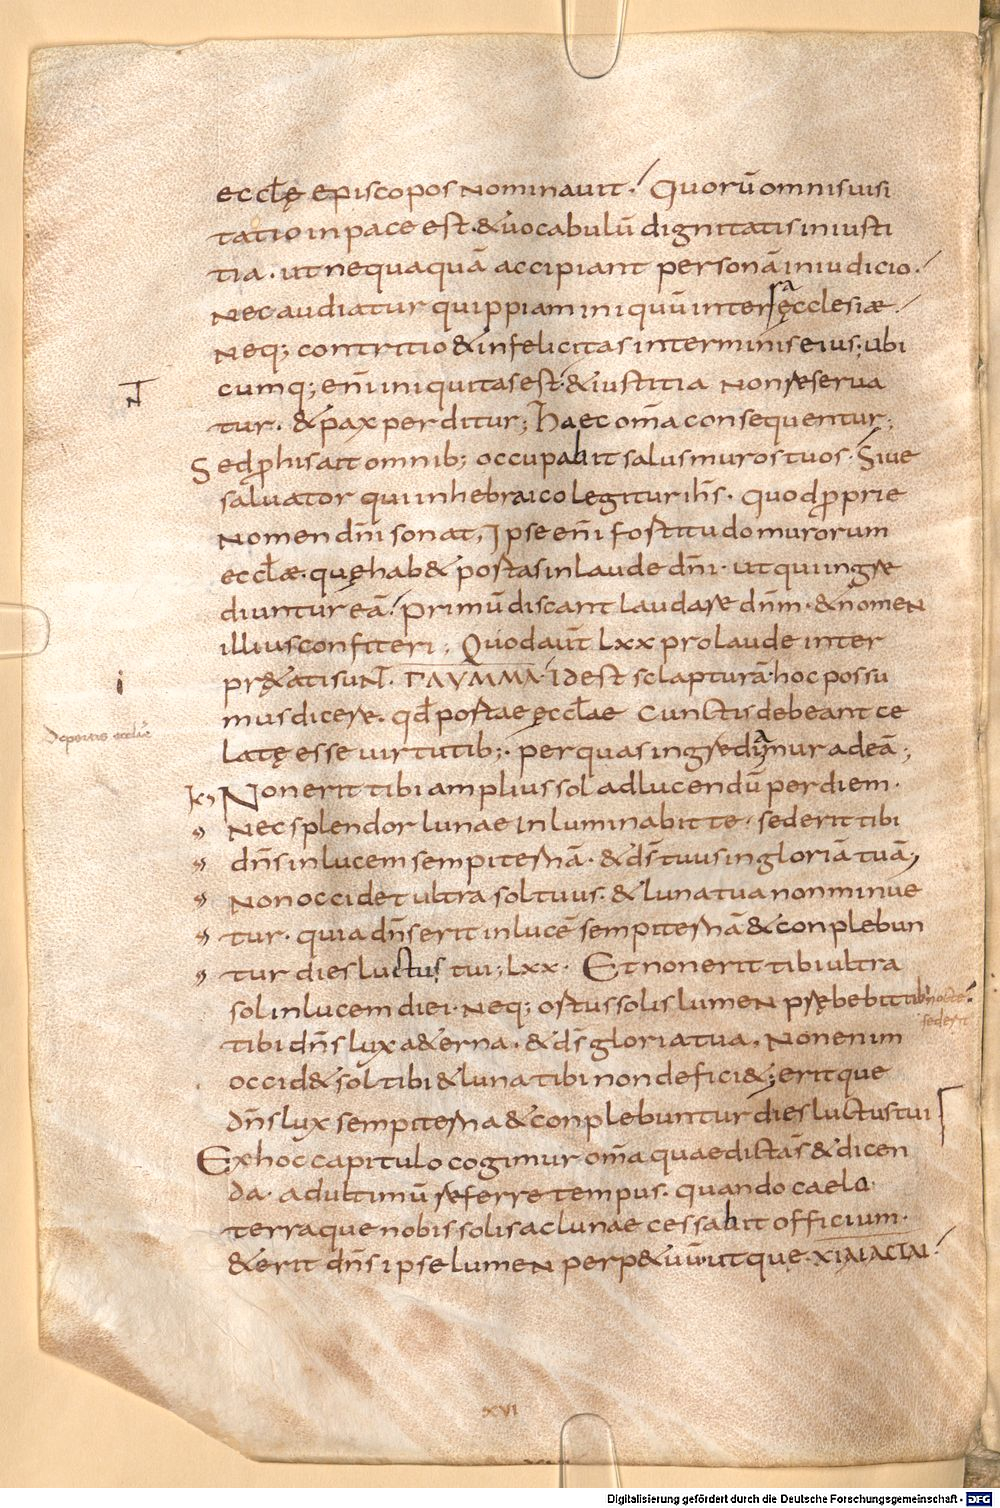 eccłę episcopos nominauit. Quorū omnis uisi
tatio in pace est. & uocabulū dignitatis iniusti
tia. ut nequaquā accipiant personā in iudicio.
Nec audiatur quippiam iniquū inter sa ęcclesiæ.
Neq; contritio & infelicitas in terminis eius; ubi
cumq; enī iniquitas est. & iustitia non reserua
tur. & pax perditur; haec oīa consequentur;
Sed p his ait omnib; occupabit salus muros tuos. Siue
saluator qui in hebraico legitur ihs. quod pprie
nomen dnī sonat, Ipse enī fortitudo murorum
eccłæ. quę hab& portas in laude dnī. ut qui ingre
diuntur eā. Primū discant laudare dnm. & nomen
illius confiteri; Quod aut LXX pro laude inter
pr&ati sunt. ΓΛΥΜΜΑ. Id est sclapturā. hoc possu
mus dicere. qd portae ęccłae cunctis debeant ce
latę esse uirtutib; per quas ingrediamur ad eā;
Non erit tibi amplius sol ad lucendū per diem.
Nec splendor lunae inluminabit te. sed erit tibi
dns in lucem sempiternā. & ds tuus in gloriā tuā,
Non occidet ultra sol tuus. & luna tua non minue
tur. quia dns erit in lucē sempiternā & conplebun
tur dies luctus tui; LXX. Et non erit tibi ultra
sol in lucem diei. Neq; ortus solis lumen prębebit tibi nocte.
sed erit
tibi dns lux a&erna. & ds gloria tua. Non enim
occid& sol tibi & luna tibi non defici&; eritque
dns lux sempiterna & conplebuntur dies luctus tui
Ex hoc capitulo cogimur oīa quae dicta s & dicen
da. ad ultimū referre tempus. quando caelo
terraque nobis solis ac lunae cessabit officium.
& erit dns ipse lumen perp&uū utque. ΧΙΛΙΑϹΤΑΙ.
XVI
NT
i
De portis ecclesie
Digitalisierung gefördert durch die Deutsche Forschungsgemeinschaft - DFG